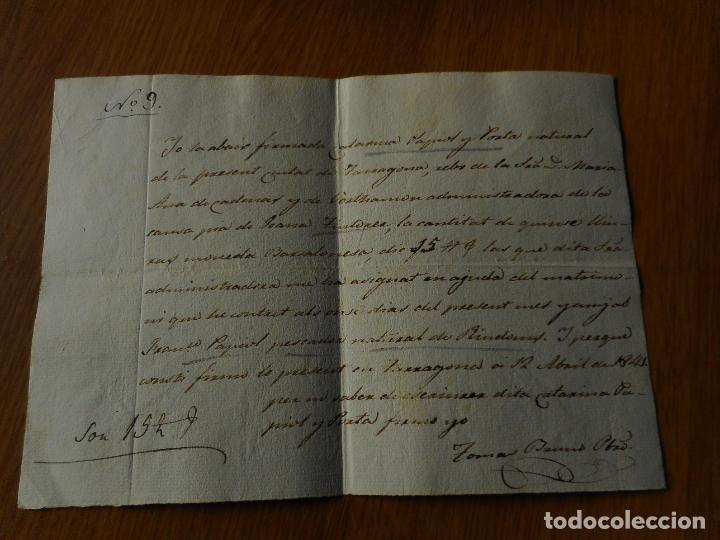 No. 9.
Jo la abaix firmada Catarina Papiol y Porta natural
de la present ciutat de Tarragona, rebo de la Sra. D. Maria
Ana de Cadenas y de administradora de la
causa pia de Joana la cantitat de quinse lliu-
ras moneda Barcelonesa, dic 15 las que dita Sra.
administradora me ha asignat en ajuda del matrimo-
ni que he contret als onse dias del present mes y any ab
Franco. Papiol pescador natural de Riudoms. I perque
consti firmo lo present en Tarragona á 12 Abril de 1841.
per no saber de escriurer dita Catarina Pa-
piol y Porta firmo yo
Son 15
Tomas Bruno Pbro.
todocoleccion
todocoleccion.net